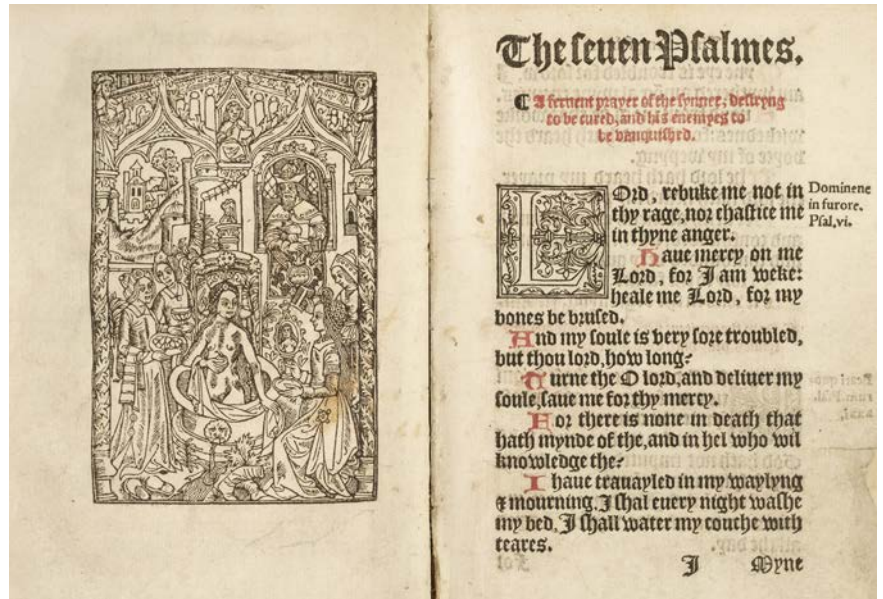 The seuen Psalmes.
¶ A feruent prayer of the synner, desiryng
to be cured, and his enemyes to
be vanquished.
LOrd, rebuke me not in
thy rage, nor chastice me
in thyne anger.
Haue mercy on me
Lord, for I am weke:
heale me Lord, for my
bones be brused.
And my soule is very sore troubled,
but thou lord, how long?
Turne the O lord, and deliuer my
soule, saue me for thy mercy.
For there is none in death that
hath mynde of the, and in hel who wil
knowledge the?
I haue trauayled in my waylyng
& mourning, I shal euery night washe
my bed, I shall water my couche with
teares.
I Myne
Dominene
in furore.
Psal,vi.